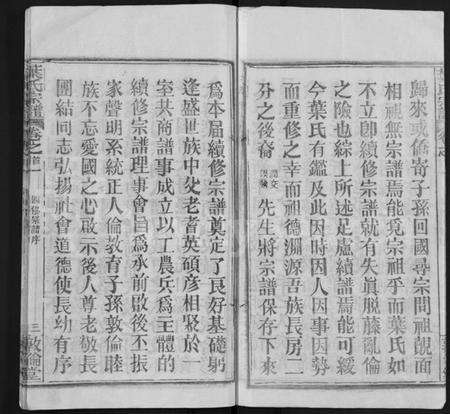 歸來或僑寄子孫回國尋宗問祖覿面
相視無宗譜焉能覓宗祖乎而葉氏如
不立即續修宗譜就有失眞脫藤亂倫
之險也綜上所述足慮續譜焉能可緩
今葉氏有鑑及此因時因人因事因勢
之幸而祖德淵源吾族長房二
房之後裔 先生將宗譜保存下來
爲本屆續修宗譜奠定了良好基礎躬
逢盛世族中父老者英碩彥相聚於一
室共商譜事成立以工農兵爲主體的
續修宗譜理事會旨爲承前啟後丕振
家聲明系統正人倫教育子孫敦倫睦
族不忘愛國之心啟示後人尊老敬長
團結同志弘揚社會道德使長幼有序
葉氏宗譜
卷之首一
四修宗譜序
三
敦倫堂